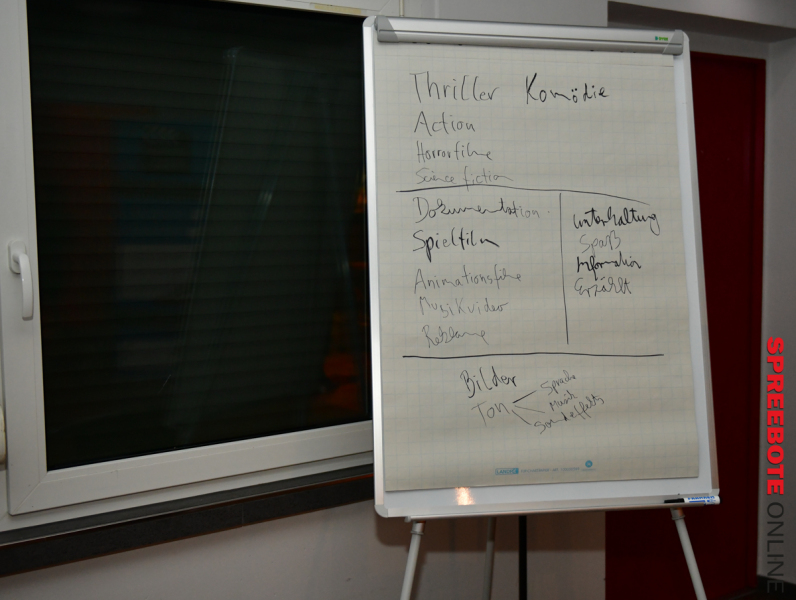 Thriller Komödie
Action
Horrorfilme
Science fiction
Dokumentation
Spielfilm
Animationsfilme
Musikvideo
Reklame
Unterhaltung
Spaß
Information
Erzählt
Bilder
Ton
Sprache
Musik
Soundeffekts
SPREEBOTE ONLINE